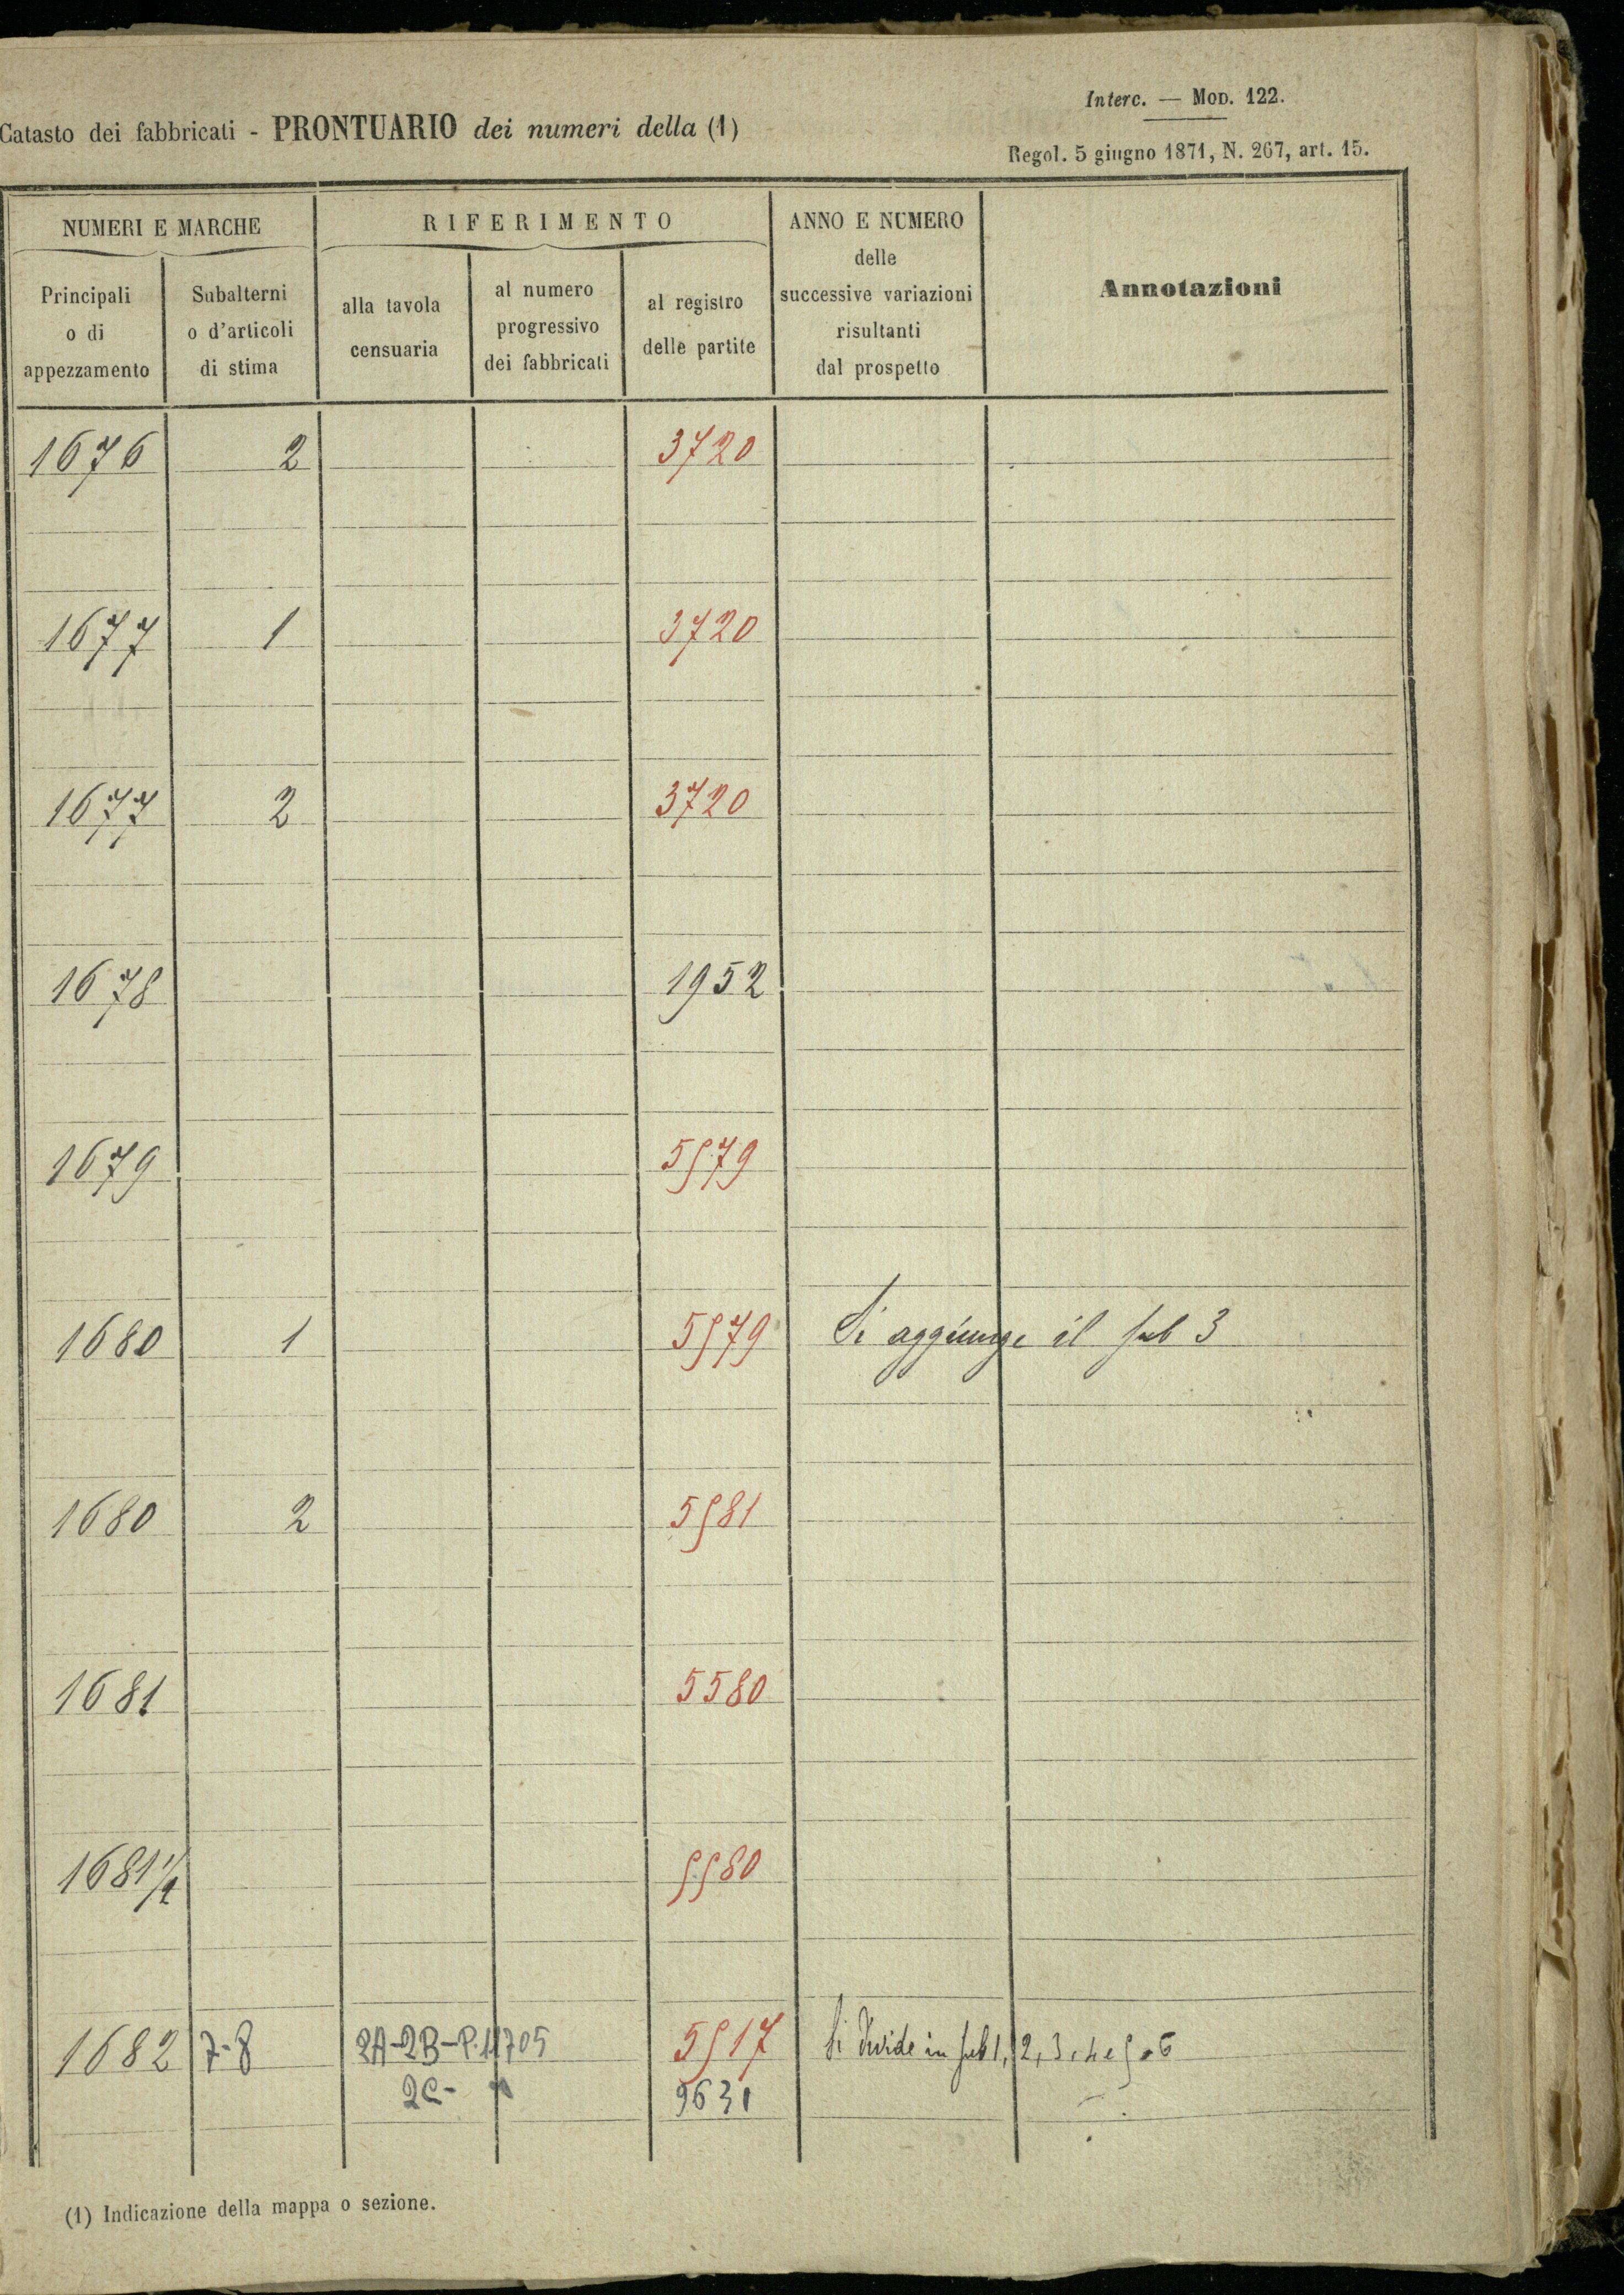 Interc. — MOD. 122.
Catasto dei fabbricati - PRONTUARIO dei numeri della (1)
Regol. 5 giugno 1871, N. 267, art. 15.
NUMERI E MARCHE
RIFERIMENTO
ANNO E NUMERO
delle
successive variazioni
risultanti
dal prospetto
Annotazioni
Principali
o di
appezzamento
Subalterni
o d'articoli
di stima
alla tavola
censuaria
al numero
progressivo
dei fabbricati
al registro
delle partite
1676 2 3720
1677 1 3720
1677 2 3720
1678 1952
1679 5579
1680 1 5579 Si aggiunge il sub 3
1680 2 5581
1681 5580
1681 1/2 5580
1682 7-8 2A-2B-P.11705 5517 Si divide in sub 1, 2, 3, 4 e 5 e 6
2C- 9631
(1) Indicazione della mappa o sezione.